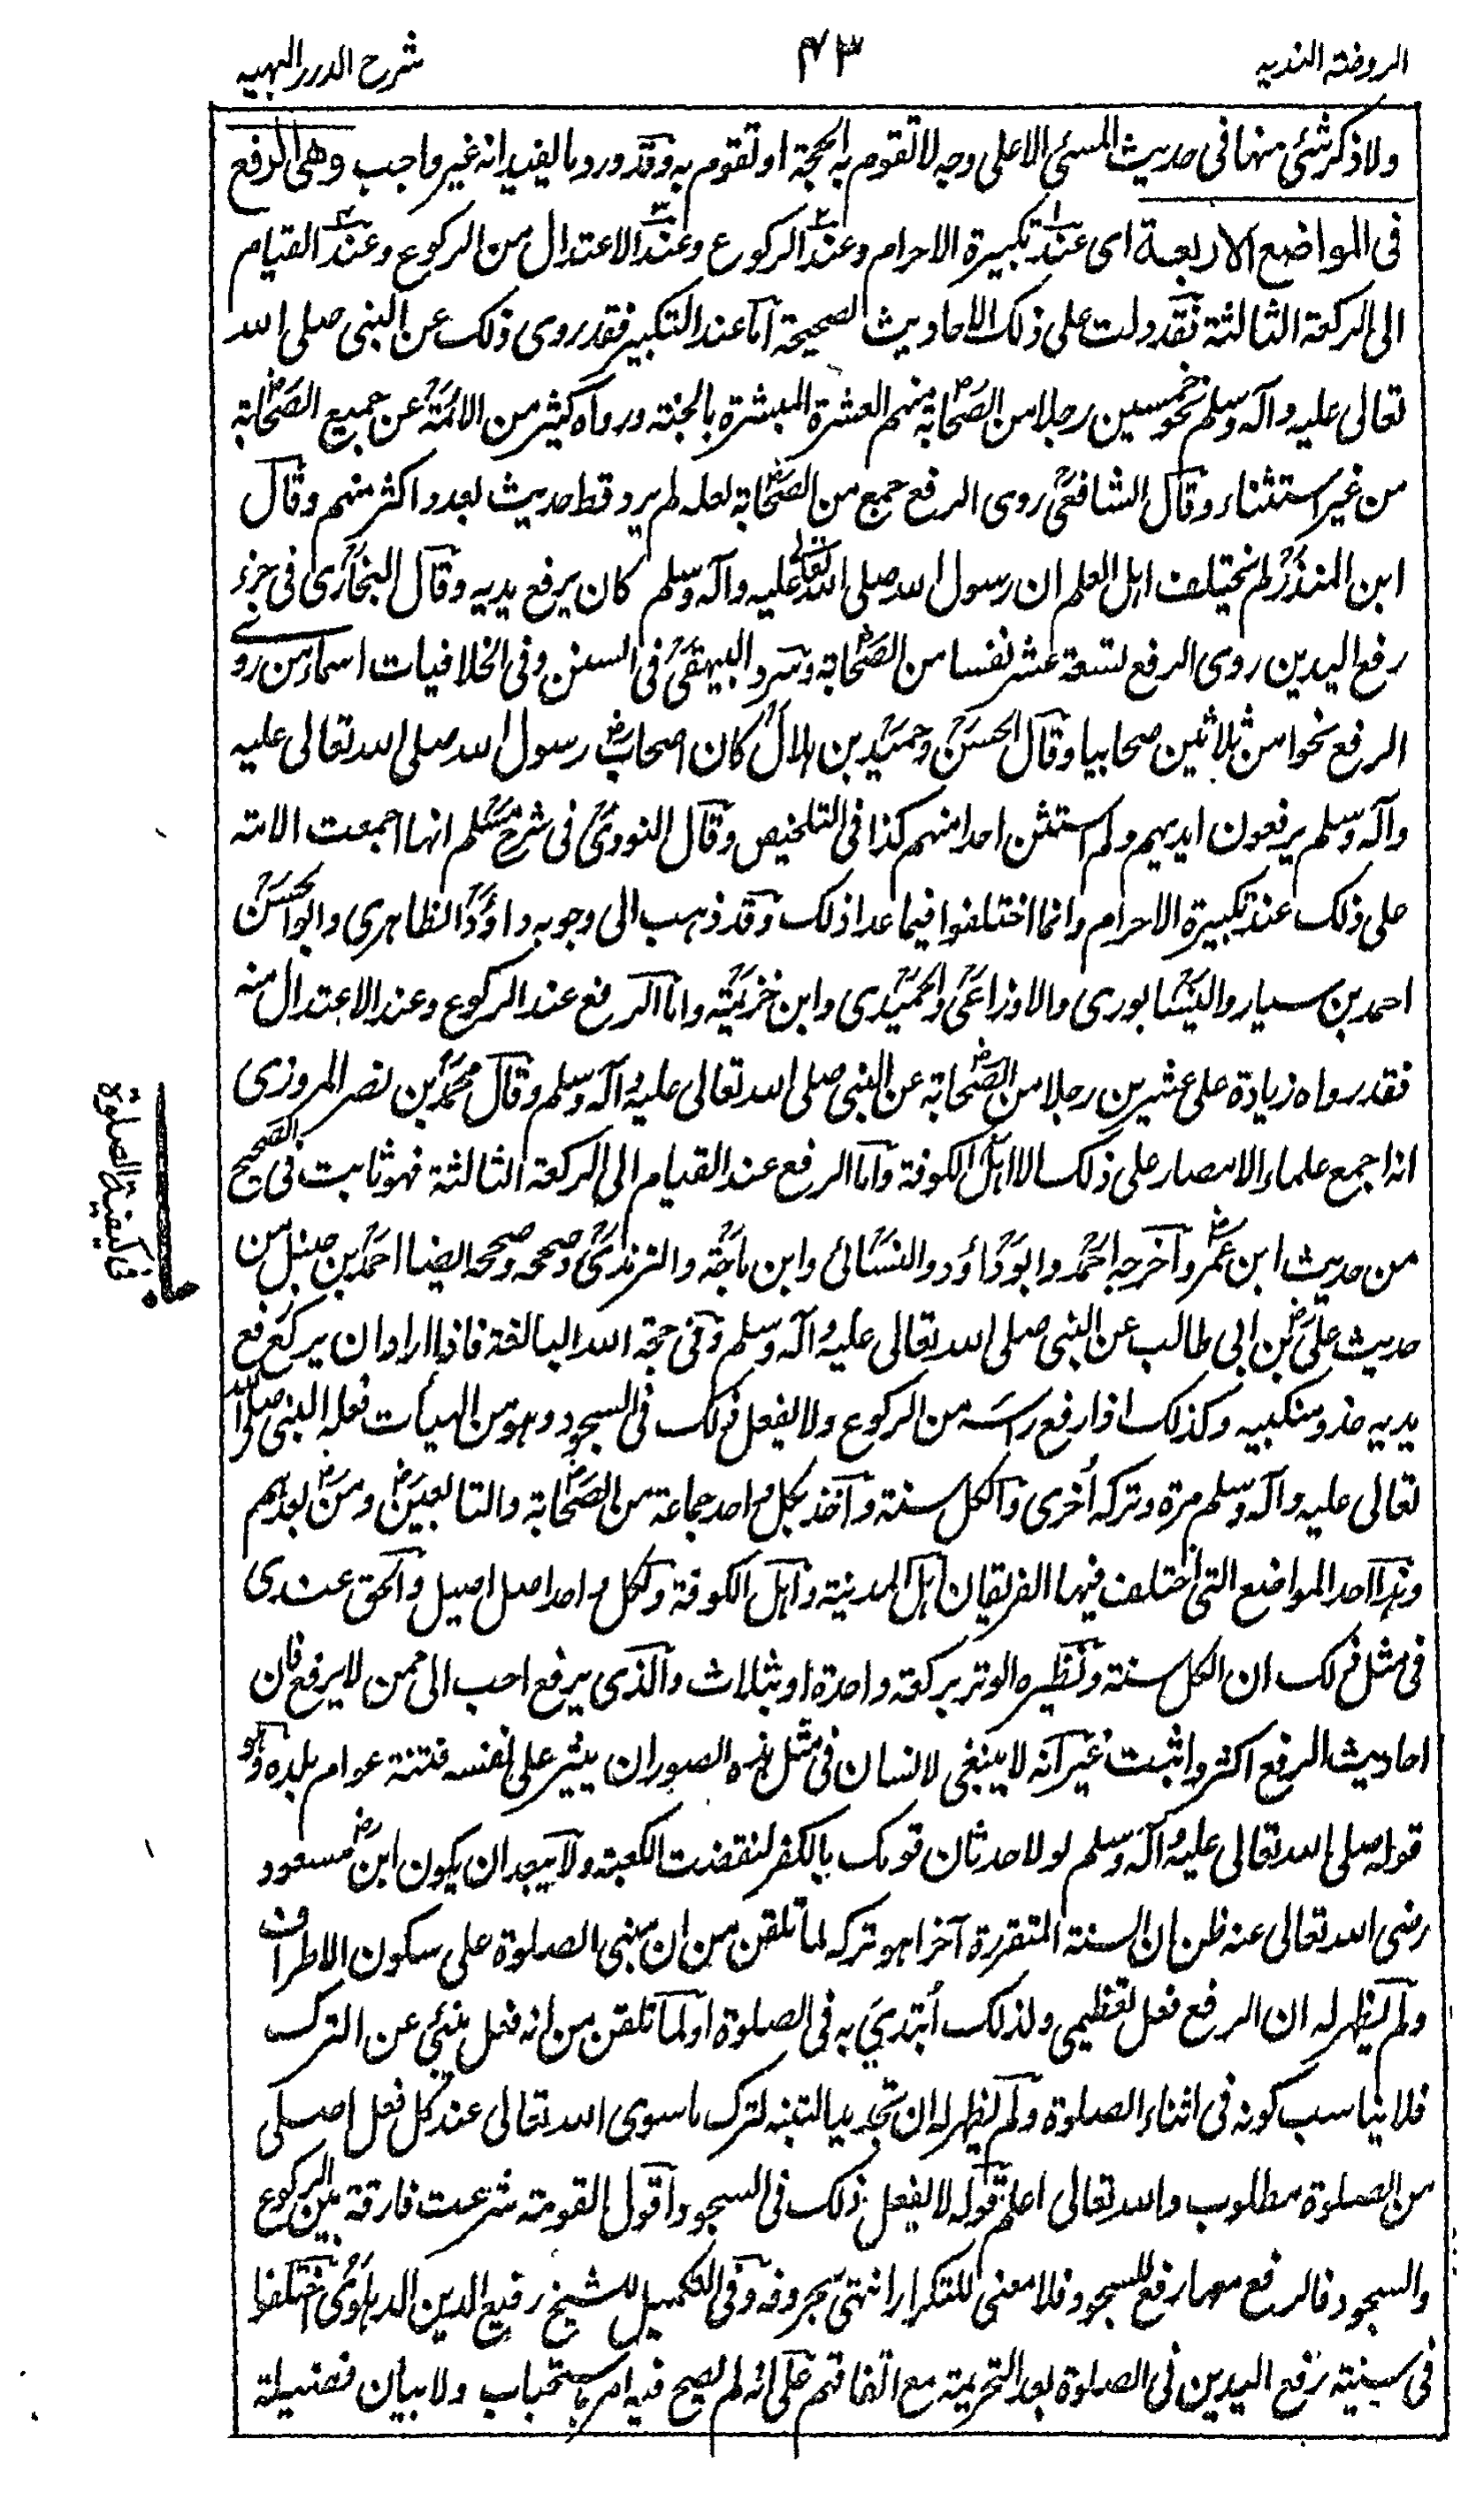 الروضة الندیه
۴۳
شرح الدرر البهیه
ولا ذكر شئ منها فی حدیث المسئ الا علی وجه لا تقوم به الحجة او تقوم به وقد ورد ما یفید انه غیر واجب وهی الرفع
فی المواضع الاربعة ای عند تكبیرة الاحرام وعند الركوع وعند الاعتدال من الركوع وعند القیام
الی الركعة الثالثة فقد دلت علی ذلك الاحادیث الصحیحة اما عند التكبیر فقد روی ذلك عن النبی صلی الله
تعالی علیه وآله وسلم نحو خمسین رجلا من الصحابة منهم العشرة المبشرة بالجنة ورواه كثیر من الائمة عن جمیع الصحابة
من غیر استثناء وقال الشافعی روی الرفع جمع من الصحابة لعله لم یرو قط حدیث بعدد اكثر منهم وقال
ابن المنذر لم یختلف اهل العلم ان رسول الله صلی الله تعالی علیه وآله وسلم كان یرفع یدیه وقال البخاری فی جزء
رفع الیدین روی الرفع تسعة عشر نفسا من الصحابة وسرد البیهقی فی السنن وفی الخلافیات اسماء من روی
الرفع نحوا من ثلاثین صحابیا وقال الحسن وحمید بن هلال كان اصحاب رسول الله صلی الله تعالی علیه
وآله وسلم یرفعون ایدیهم ولم استثن احدا منهم كذا فی التلخیص وقال النووی فی شرح مسلم انها اجمعت الامة
علی ذلك عند تكبیرة الاحرام وانما اختلفوا فیما عدا ذلك وقد ذهب الی وجوبه داؤد الظاهری وابو الحسن
احمد بن سیار والنیسابوری والاوزاعی والحمیدی وابن خزیمة واما الرفع عند الركوع وعند الاعتدال منه
فقد رواه زیادة علی عشرین رجلا من الصحابة عن النبی صلی الله تعالی علیه وآله وسلم وقال محمد بن نصر المروزی
انه اجمع علماء الامصار علی ذلك الا اهل الكوفة واما الرفع عند القیام الی الركعة الثالثة فهو ثابت فی الصحیح
من حدیث ابن عمر واخرجه احمد وابو داؤد والنسائی وابن ماجة والترمذی وصححه وصححه ایضا احمد بن حنبل من
حدیث علی بن ابی طالب عن النبی صلی الله تعالی علیه وآله وسلم وفی حجة الله البالغة فاذا اراد ان یركع رفع
یدیه حذو منكبیه وكذلك اذا رفع راسه من الركوع ولا یفعل ذلك فی السجود وهو من الهیأت فعله النبی صلی الله
تعالی علیه وآله وسلم مرة وتركه اُخری والكل سنة واخذ بكل واحد جماعة من الصحابة والتابعین ومن بعدهم
وهذا احد المواضع التی اختلف فیها الفریقان اهل المدینة واهل الكوفة ولكل واحد اصل اصیل والحق عندی
فی مثل ذلك ان الكل سنة ونظیره الوتر بركعة واحدة او بثلاث والذی یرفع احب الی ممن لا یرفع فان
احادیث الرفع اكثر واثبت غیر انه لا ینبغی لانسان فی مثل هذه الصور ان یثیر علی نفسه فتنة عوام بلده وهو
قوله صلی الله تعالی علیه وآله وسلم لولا حدثان قومك بالكفر لنقضت الكعبة ولا یبعد ان یكون ابن مسعود
رضی الله تعالی عنه ظن ان السنة المتقررة آخرا هو تركه لما تلقن من ان مبنی الصلوة علی سكون الاطراف
ولم یظهر له ان الرفع فعل تعظیمی ولذلك اُبتدئ به فی الصلوة او لما تلقن من انه فعل ینبئ عن الترك
فلا یناسب كونه فی اثناء الصلوة ولم یظهر له ان تجدید التنبه لترك ما سوی الله تعالی عند كل فعل اصلی
من الصلوة مطلوب والله تعالی اعلم قوله لا یفعل ذلك فی السجود اقول القومة شرعت فارقة بین الركوع
والسجود فالرفع معها رفع للسجود فلا معنی للتكرار انتهی بحروفه وفی التكمیل للشیخ رفیع الدین الدهلوی اختلفوا
فی سنیة رفع الیدین فی الصلوة بعد التحریمة مع اتفاقهم علی انه لم یصح فیه امر باستحباب ولا بیان فضیلة
باب كیفیة الصلوة